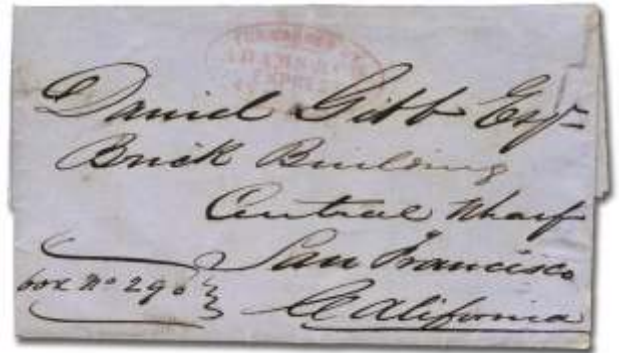 ADAMS & CO
EXPRESS
Daniel Gibb Esqr
Brick Building
Central Wharf
San Francisco
box No 290
California